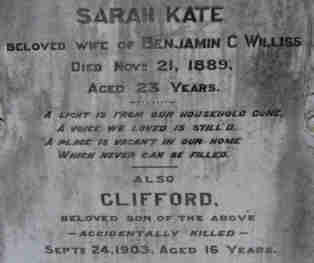 SARAH KATE
BELOVED WIFE OF BENJAMIN C WILLISS
DIED NOVR 21, 1889.
AGED 23 YEARS.
A LIGHT IS FROM OUR HOUSEHOLD GONE,
A VOICE WE LOVED IS STILL'D.
A PLACE IS VACANT IN OUR HOME
WHICH NEVER CAN BE FILLED.
ALSO
CLIFFORD,
BELOVED SON OF THE ABOVE
— ACCIDENTALLY KILLED —
SEPTR 24, 1903. AGED 16 YEARS.